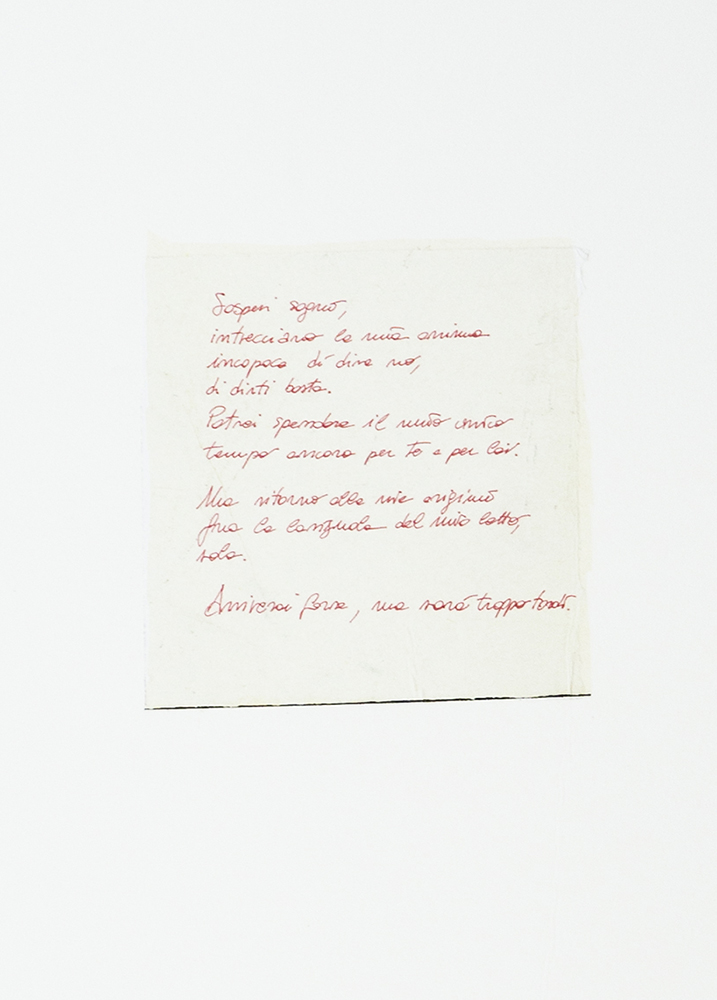 Sospesi sogni,
intrecciano la mia anima
incapace di dire no,
di dirti basta.
Potrei spendere il mio unico
tempo ancora per te e per lei.
Ma ritorno alle mie origini
fra le lenzuola del mio letto,
sola.
Arriverai forse, ma sarà troppo tardi.